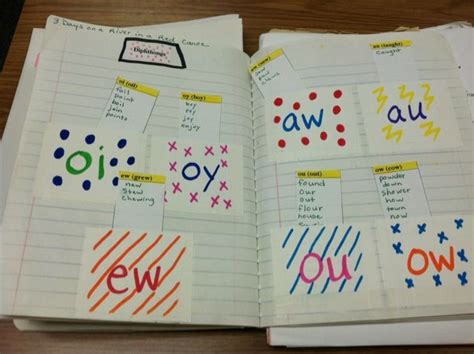 3 Days on a River in a Red Canoe
Diphthongs
oi (oil)
foil
point
boil
join
points
oy (boy)
boy
joy
enjoy
oi
oy
ew (grew)
new
stew
chewing
ew
aw (saw)
saw
paw
claws
au (taught)
caught
aw
au
ou (out)
found
our
out
flour
house
ow (cow)
powder
down
shower
how
town
now
ou
ow